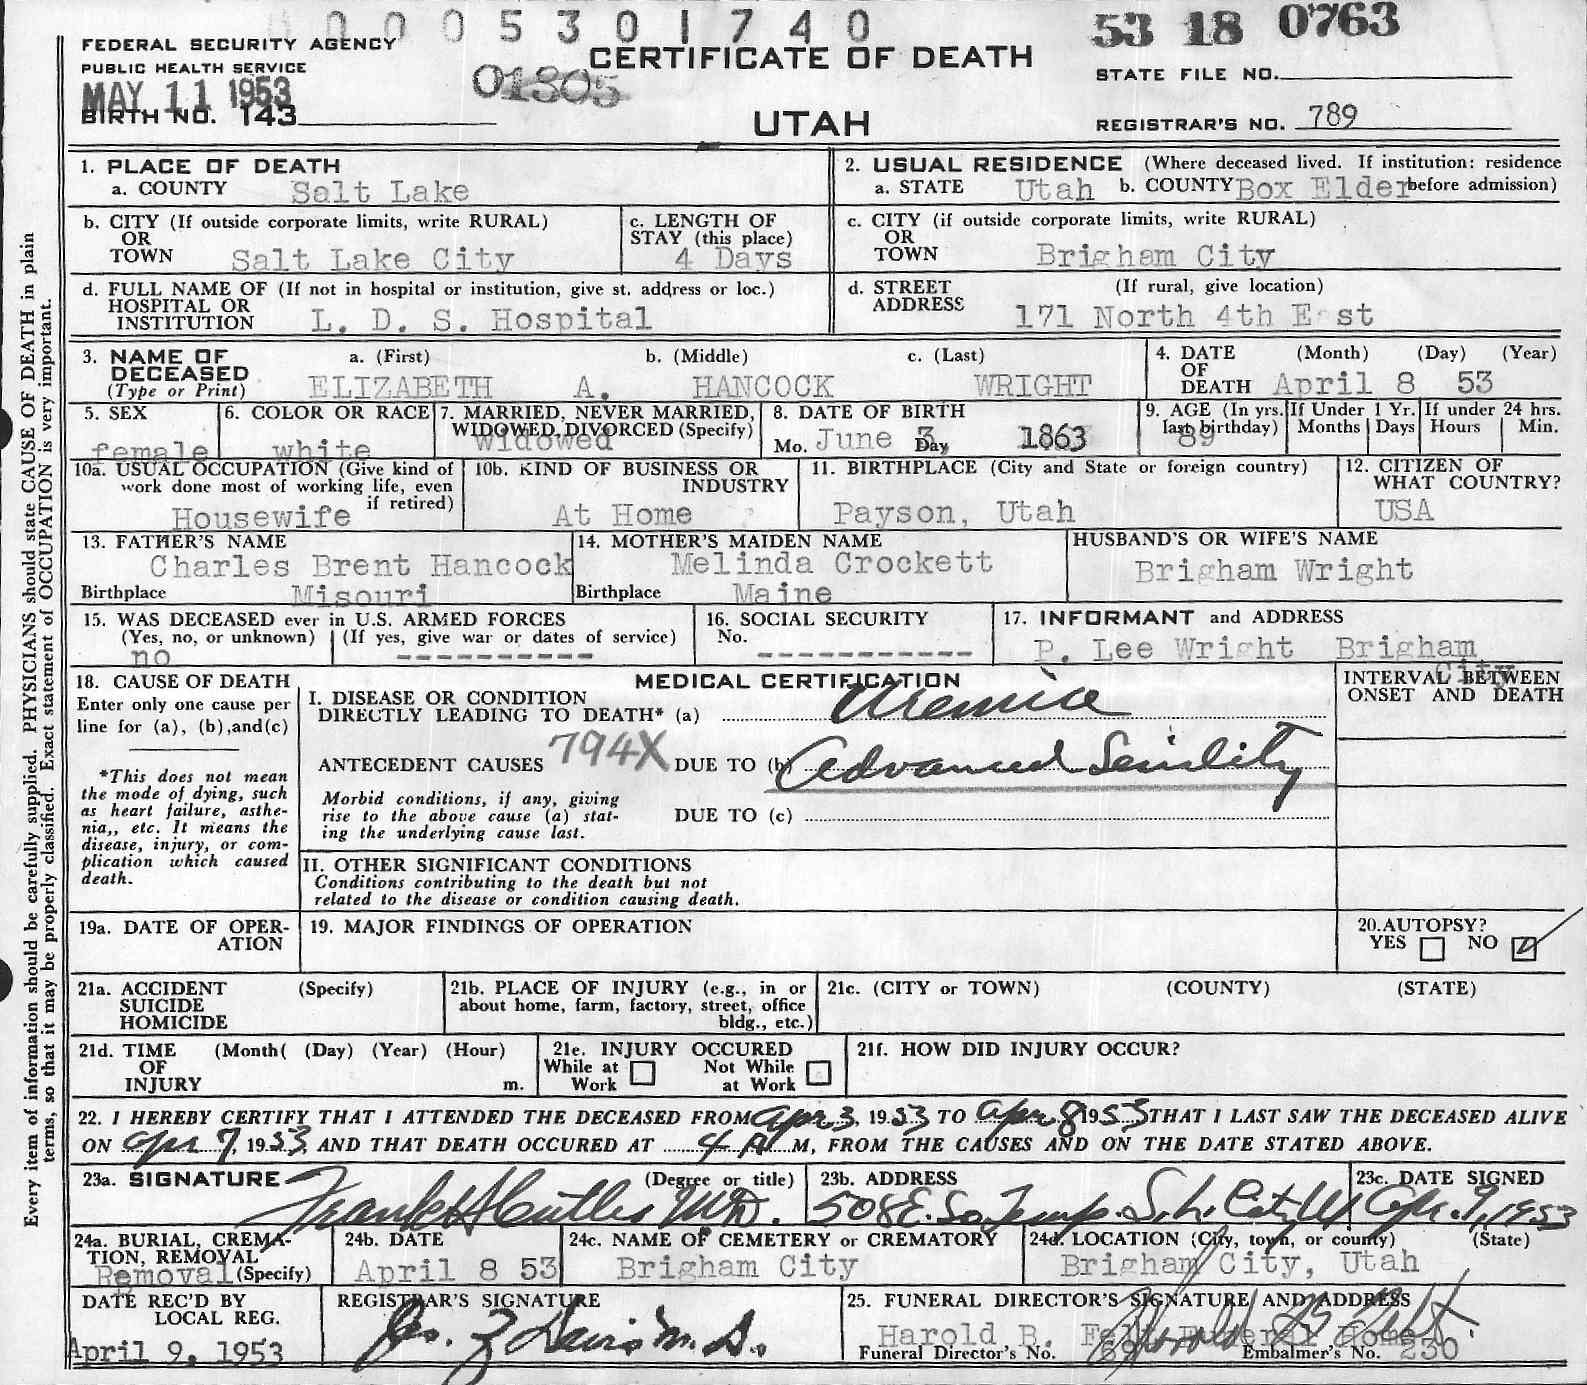 0005301740
53 18 0763
FEDERAL SECURITY AGENCY
PUBLIC HEALTH SERVICE
CERTIFICATE OF DEATH
STATE FILE NO.
MAY 11 1953
01305
BIRTH NO. 143
UTAH
REGISTRAR'S NO. 789
Every item of information should be carefully supplied. PHYSICIANS should state CAUSE OF DEATH in plain
terms, so that it may be properly classified. Exact statement of OCCUPATION is very important.
1. PLACE OF DEATH
a. COUNTY Salt Lake
2. USUAL RESIDENCE (Where deceased lived. If institution: residence
a. STATE Utah b. COUNTY Box Elder before admission)
b. CITY (If outside corporate limits, write RURAL)
OR
TOWN Salt Lake City
c. LENGTH OF
STAY (this place)
4 Days
c. CITY (if outside corporate limits, write RURAL)
OR
TOWN Brigham City
d. FULL NAME OF (If not in hospital or institution, give st. address or loc.)
HOSPITAL OR
INSTITUTION L. D. S. Hospital
d. STREET (If rural, give location)
ADDRESS 171 North 4th East
3. NAME OF DECEASED
(Type or Print)
a. (First) b. (Middle) c. (Last)
ELIZABETH A. HANCOCK WRIGHT
4. DATE (Month) (Day) (Year)
OF
DEATH April 8 53
5. SEX
female
6. COLOR OR RACE
white
7. MARRIED, NEVER MARRIED,
WIDOWED, DIVORCED (Specify)
widowed
8. DATE OF BIRTH
Mo. June 3 Day 1863
9. AGE (In yrs. last birthday)
89
If Under 1 Yr.
Months Days
If under 24 hrs.
Hours Min.
10a. USUAL OCCUPATION (Give kind of
work done most of working life, even
if retired)
Housewife
10b. KIND OF BUSINESS OR
INDUSTRY
At Home
11. BIRTHPLACE (City and State or foreign country)
Payson, Utah
12. CITIZEN OF
WHAT COUNTRY?
USA
13. FATHER'S NAME
Charles Brent Hancock
Birthplace Misouri
14. MOTHER'S MAIDEN NAME
Melinda Crockett
Birthplace Maine
HUSBAND'S OR WIFE'S NAME
Brigham Wright
15. WAS DECEASED ever in U.S. ARMED FORCES
(Yes, no, or unknown) (If yes, give war or dates of service)
no ----------
16. SOCIAL SECURITY
No.
-----------
17. INFORMANT and ADDRESS
P. Lee Wright Brigham
City
18. CAUSE OF DEATH
Enter only one cause per
line for (a), (b),and(c)
*This does not mean
the mode of dying, such
as heart failure, asthe-
nia,, etc. It means the
disease, injury, or com-
plication which caused
death.
MEDICAL CERTIFICATION
I. DISEASE OR CONDITION
DIRECTLY LEADING TO DEATH* (a) Uremia
794X
ANTECEDENT CAUSES DUE TO (b) Advanced Senility
Morbid conditions, if any, giving
rise to the above cause (a) stat-
ing the underlying cause last.
DUE TO (c)
II. OTHER SIGNIFICANT CONDITIONS
Conditions contributing to the death but not
related to the disease or condition causing death.
INTERVAL BETWEEN
ONSET AND DEATH
19a. DATE OF OPER-
ATION
19. MAJOR FINDINGS OF OPERATION
20. AUTOPSY?
YES NO
21a. ACCIDENT (Specify)
SUICIDE
HOMICIDE
21b. PLACE OF INJURY (e.g., in or
about home, farm, factory, street, office
bldg., etc.)
21c. (CITY or TOWN) (COUNTY) (STATE)
21d. TIME (Month( (Day) (Year) (Hour)
OF
INJURY m.
21e. INJURY OCCURED
While at Work Not While at Work
21f. HOW DID INJURY OCCUR?
22. I HEREBY CERTIFY THAT I ATTENDED THE DECEASED FROM Apr 3, 1953 TO Apr 8 1953 THAT I LAST SAW THE DECEASED ALIVE
ON Apr 7, 1953, AND THAT DEATH OCCURED AT 4 A M, FROM THE CAUSES AND ON THE DATE STATED ABOVE.
23a. SIGNATURE (Degree or title)
Frank H Cutler M.D.
23b. ADDRESS
508 E. So Temp. S. L. City U
23c. DATE SIGNED
Apr. 9, 1953
24a. BURIAL, CREMA-
TION, REMOVAL
Removal (Specify)
24b. DATE
April 8 53
24c. NAME OF CEMETERY or CREMATORY
Brigham City
24d. LOCATION (City, town, or county) (State)
Brigham City, Utah
DATE REC'D BY
LOCAL REG.
April 9, 1953
REGISTRAR'S SIGNATURE
Jas. Z Davis M. D.
25. FUNERAL DIRECTOR'S SIGNATURE AND ADDRESS
Harold B. Felt Funeral Home
Harold B Felt
Funeral Director's No. Embalmer's No. 230